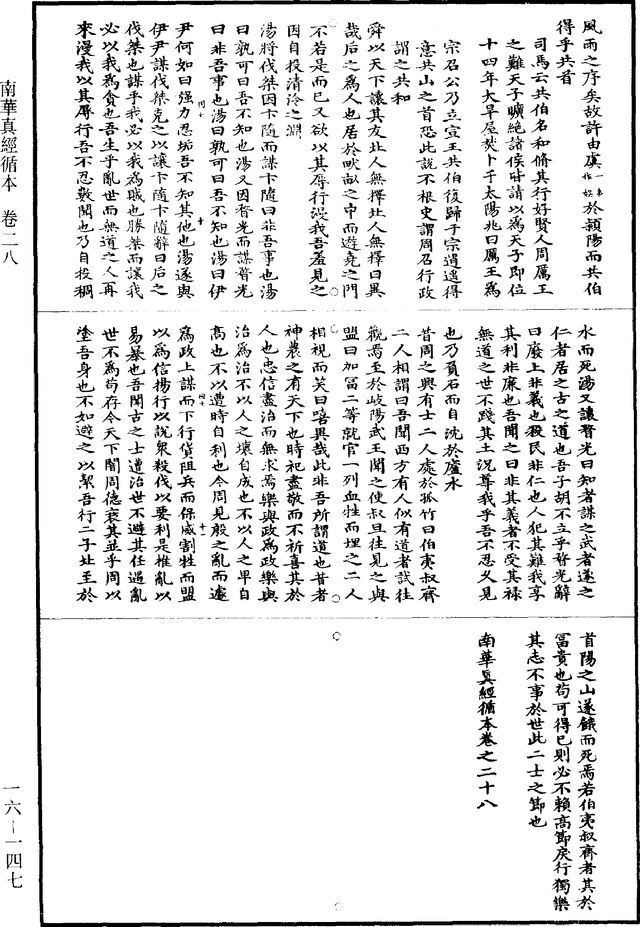 風雨之序矣故許由虞一本作娛於頴陽而共伯
得乎共首
司馬云共伯名和脩其行好賢人周厲王
之難天子曠絶諸侯皆請以為天子即位
十四年大旱屋焚卜于太陽兆曰厲王為
宗召公乃立宣王共伯復歸于宗逍遥得
意共山之首恐此說不根史謂周召行政
謂之共和
舜以天下讓其友北人無擇北人無擇曰異
哉后之為人也居於畎畝之中而遊堯之門
不若是而已又欲以其辱行漫我吾羞見之
因自投清泠之淵
湯將伐桀因卞隨而謀卞隨曰非吾事也湯
曰孰可曰吾不知也湯又因瞀光而謀瞀光
曰非吾事也湯曰孰可曰吾不知也湯曰伊
四十 十
尹何如曰强力忍垢吾不知其他也湯遂與
伊尹謀伐桀克之以讓卞隨卞隨辭曰后之
伐桀也謀乎我必以我為賊也勝桀而讓我
必以我為貪也吾生乎亂世而無道之人再
來漫我以其辱行吾不忍數聞也乃自投稠
水而死湯又讓瞀光曰知者謀之武者遂之
仁者居之古之道也吾子胡不立乎瞀光辭
曰廢上非義也殺民非仁也人犯其難我享
其利非廉也吾聞之曰非其義者不受其禄
無道之世不踐其土況尊我乎吾不忍久見
也乃負石而自沈於廬水
昔周之興有士二人處於孤竹曰伯夷叔齊
二人相謂曰吾聞西方有人似有道者試往
觀焉至於岐陽武王聞之使叔旦往見之與
盟曰加富二等就官一列血牲而埋之二人
相視而笑曰嘻異哉此非吾所謂道也昔者
神農之有天下也時祀盡敬而不祈喜其於
人也忠信盡治而無求焉樂與政為政樂與
治為治不以人之壞自成也不以人之卑自
高也不以遭時自利也今周見殷之亂而遽
四十 十一
為政上謀而下行貨阻兵而保威割牲而盟
以為信揚行以說衆殺伐以要利是推亂以
易暴也吾聞古之士遭治世不避其任遇亂
世不為苟存今天下闇周德衰其並乎周以
塗吾身也不如避之以絜吾行二子北至於
首陽之山遂餓而死焉若伯夷叔齊者其於
富貴也苟可得已則必不賴高節戾行獨樂
其志不事於世此二士之節也
南華真經循本卷之二十八
南華真經循本　卷二八
一六－一四七